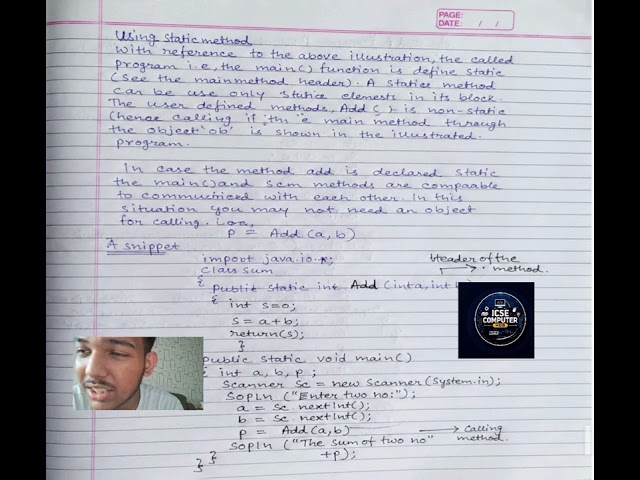 PAGE:
DATE: / /
Using Static method
With reference to the above illustration, the called
program i.e, the main() function is define static
(see the mainmethod header). A static method
can be use only static elements in its block.
The user defined methods, Add () is non-static
(hence calling it the main method through
the object 'ob' is shown in the illustrated
program.
In case the method add is declared static
the main() and scm methods are compaable
to commuticed with each other. In this
situation you may not need an object
for calling. i.e,
p = Add (a, b)
A snippet
import java.io.*;
Header of the
method.
class sum
{ public static int Add (int a, int
{ int s=0;
s = a+b;
return(s);
}
public static void main()
{ int a, b, p ;
Scanner sc = new Scanner (System.in);
Sopln ("Enter two no:");
a = sc. nextInt();
b = sc. nextInt();
p = Add (a, b)
Calling
method.
Sopln ("The sum of two no"
+p);
} }
}
ICSE
COMPUTER